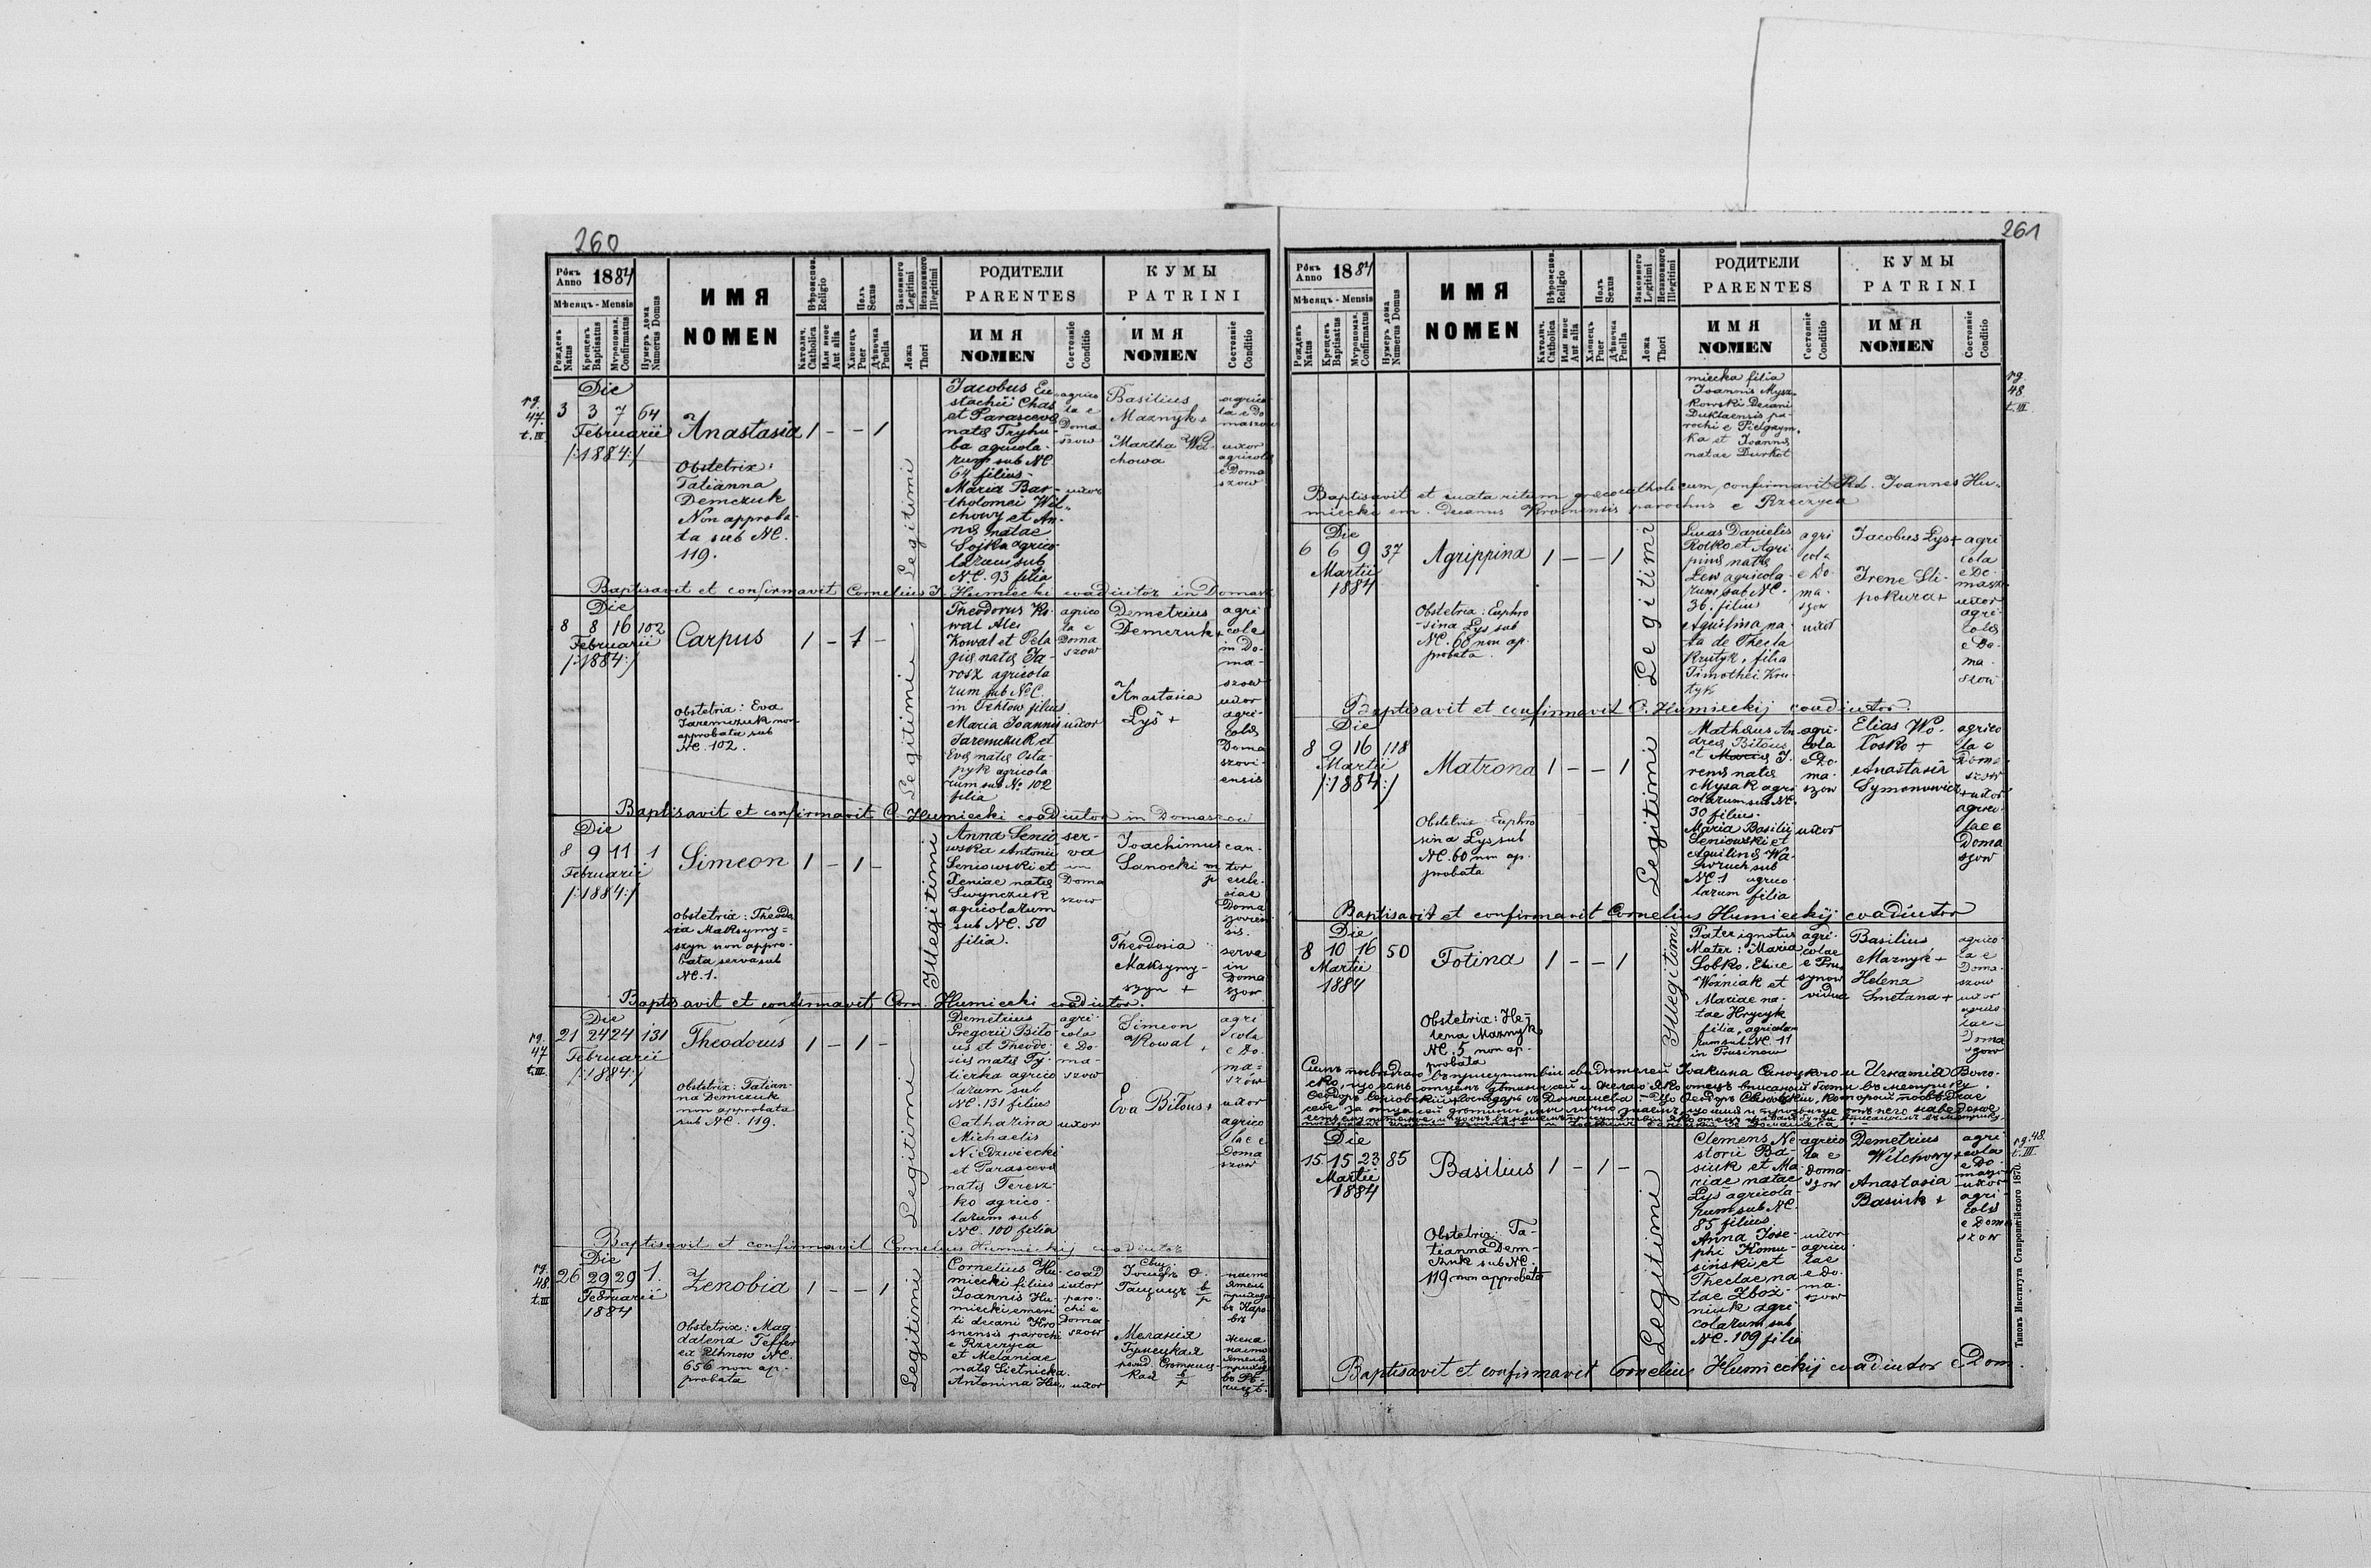 260
Рôкъ
Anno 1884
Мѣсяцъ - Mensis
Рожденъ
Natus
Крещенъ
Baptisatus
Мvропомаз.
Confirmatus
Нумеръ дома
Numerus Domus
ИМЯ
NOMEN
Вѣроиспов.
Religio
Католич.
Catholica
Или иное
Aut alia
Полъ
Sexus
Хлопецъ
Puer
Дѣвочка
Puella
Законного
Legitimi
Незаконного
Illegitimi
Ложа
Thori
РОДИТЕЛИ
PARENTES
ИМЯ
NOMEN
Состояніе
Conditio
КУМЫ
PATRINI
ИМЯ
NOMEN
Состояніе
Conditio
pg.
47.
t. III
Die
3 3 7 64
Februarii
/:1884:/
Anastasia
1 - - 1
Obstetrix:
Tatianna
Demczuk
Non approba-
ta sub NC.
119.
Legitimi
Jacobus Eu-
stachii Chas
et Parascevę
natę Tryhu-
ba agricola-
rum sub NC.
64 filius
Maria Bar-
tholomei Wil-
chowy et An-
nę natae
Sojka agrico-
larum sub
N.C. 93 filia
agrico-
la e
Doma-
szow
uxor
Basilius
Maznyk +
Martha Wil-
chowa
agrico-
la e Do-
maszow
uxor
agricolę
e Doma-
szow
Baptisavit et confirmavit Cornelius J. Humiecki coadiutor in Domasz
Die
8 8 16 102
Februarii
/:1884:/
Carpus
1 - 1 -
Obstetrix: Eva
Jaremczuk non
approbata sub
NC. 102.
Legitimi
Theodorus Ko-
wal
Kowal et Pela-
gię natę Ja-
rosz agricola-
rum sub NC.
in filius
Maria Joannis
Jaremczuk et
Evę natę Osta-
pyk agricola-
rum sub No 102
filia
agrico-
la e
Doma-
szow
uxor
Demetrius
Demczuk +
Anastasia
Lyś +
agri-
cola
in Do-
ma-
szow
uxor
agri-
colę
Doma-
szovi-
ensis
Baptisavit et confirmavit C. Humiecki coadiutor in Domaszow
Die
8 9 11 1
Februarii
/:1884:/
Simeon
1 - 1 -
Obstetrix: Theodo-
sia Maksymy=
szyn non appro-
bata serva sub
NC. 1.
Illegitimi
Anna Senio-
wska Antonii
Seniowski et
Xeniae natę
Swynczuk
agricolarum
sub NC. 50
filia.
ser-
va
in
Doma-
szow
Joachimus
Sanocki m/p
Theodosia
Maksymy-
szyn +
can-
tor
eccle-
siae
Doma-
szovien-
sis.
serva
in
Doma-
szow
Baptisavit et confirmavit Corn. Humiecki coadiutor.
pg.
47
t. III
Die
21 24 24 131
Februarii
/:1884:/
Theodorus
1 - 1 -
Obstetrix: Tatian-
na Demczuk
non approbata
sub NC. 119.
Legitimi
Demetrius
Gregorii Bito-
us et Theodo-
się natę Ty-
tierka agrico-
larum sub
NC. 131 filius
Catharina
Michaelis
Niedzwiecki
et Parascevę
natę Teresz-
ko agrico-
larum sub
NC. 100 filia
agri-
cola
e Do-
ma-
szow
uxor
Simeon
Kowal +
Eva Bitous +
agri-
cola
e Do-
ma-
szow
uxor
agrico-
lae e
Doma-
szow
Baptisavit et confirmavit Cornelius Humieckij coadiutor
pg.
48
t. III
Die
26 29 29 1.
Februarii
1884
Zenobia
1 - - 1
Obstetrix: Mag-
dalena Teffer
ex Uhnow NC.
656 non ap-
probata
Legitimi
Cornelius Hu-
miecki filius
Joannis Hu-
miecki emeri-
ti decani Kro-
snensis parochi
e Rzeczyca
et Melaniae
natę Lietnicka.
Antonina Hu-
coad-
iutor
paro-
chi e
Doma-
szow
uxor
Меланія
жена
261
Рôкъ
Anno 1884
Мѣсяцъ - Mensis
Рожденъ
Natus
Крещенъ
Baptisatus
Мvропомаз.
Confirmatus
Нумеръ дома
Numerus Domus
ИМЯ
NOMEN
Вѣроиспов.
Religio
Католич.
Catholica
Или иное
Aut alia
Полъ
Sexus
Хлопецъ
Puer
Дѣвочка
Puella
Законного
Legitimi
Незаконного
Illegitimi
Ложа
Thori
РОДИТЕЛИ
PARENTES
ИМЯ
NOMEN
Состояніе
Conditio
КУМЫ
PATRINI
ИМЯ
NOMEN
Состояніе
Conditio
pg.
48.
t. III.
miecka filia
Joannis Mysz-
kowski Decani
Duklaensis pa-
rochi e Pielgrzym-
ka et Joannę
natae Durkot
Baptisavit et iuxta ritum graeco catholicum confirmavit Rd. Joannes Hu-
miecki em. decanus Krosnensis parochus e Rzeczyca
Die
6 6 9 37
Martii
1884
Agrippina
1 - - 1
Obstetrix: Euphro-
sina Lys sub
NC. 60 non ap-
probata.
Legitimi
Lucas Danielis
Rotko et Agri-
pinę natę
Lew agricola-
rum sub NC.
36. filius
Aquilina na-
ta de Thecla
Krutyk, filia
Timothei Kru-
tyk
agri-
cola
e Do-
ma-
szow
uxor
Jacobus Lys +
Irene Sli-
pokura +
agri-
cola
e Do-
masz-
uxor
agri-
colę
e Do-
ma-
szow
Baptisavit et confirmavit C. Humieckij coadiutor.
Die
8 9 16 118
Martii
/:1884:/
Matrona
1 - - 1
Obstetrix Euphro-
sina Lys sub
NC. 60 non ap-
probata
Legitimi
Mathęus An-
dreę Bitous
et I-
renę natę
Mysak agri-
colarum sub NC.
30 filius.
Maria Basilii
Seniowski et
Aquilinę Wa-
wruch sub
NC. 1 agrico-
larum filia
agri-
cola
e Do-
ma-
szow
uxor
Elias Wo-
łosko +
Anastasia
Symonowicz +
agrico-
la e
Doma-
szow
uxor
agrico-
lae e
Doma-
szow
Baptisavit et confirmavit Cornelius Humieckij coadiutor
Die
8 10 16 50
Martii
1884
Fotina
1 - - 1
Obstetrix: He-
lena Maznyk
NC. 5 non ap-
probata
Illegitimi
Pater ignotus
Mater: Maria
Sobko,
Woźniak et
Mariae na-
tae Hrycyk
filia, agricola-
rum sub NC. 11
in Prusinow
agri-
colae
e Pru-
synow
vidua
Basilius
Maznyk +
Helena
Smetana +
agrico-
la e
Doma-
szow
uxor
agrico-
lae e
Doma-
szow
pg. 48.
t. III
Die
15 15 23 85
Martii
1884
Basilius
1 - 1 -
Obstetrix: Ta-
tianna Dem-
czuk sub NC.
119 non approbata
Legitimi
Clemens Ne-
storii Ba-
siuk et Ma-
riae natae
Lys agricola-
rum sub NC.
85 filius
Anna Jose-
phi Komu-
sinski et
Theclae na-
tae Zboz-
niuk agri-
colarum sub
NC. 109 filia
agrico-
la e
Doma-
szow
uxor
agrico-
lae
e Do-
ma-
szow
Demetrius
Wilchowy +
Anastasia
Basiuk +
agri-
cola
e Do-
maszow
uxor
agri-
colę
e Doma-
szow
Baptisavit et confirmavit Cornelius Humieckij coadiutor e Dom.
Типомъ Института Ставропигійского 1870.